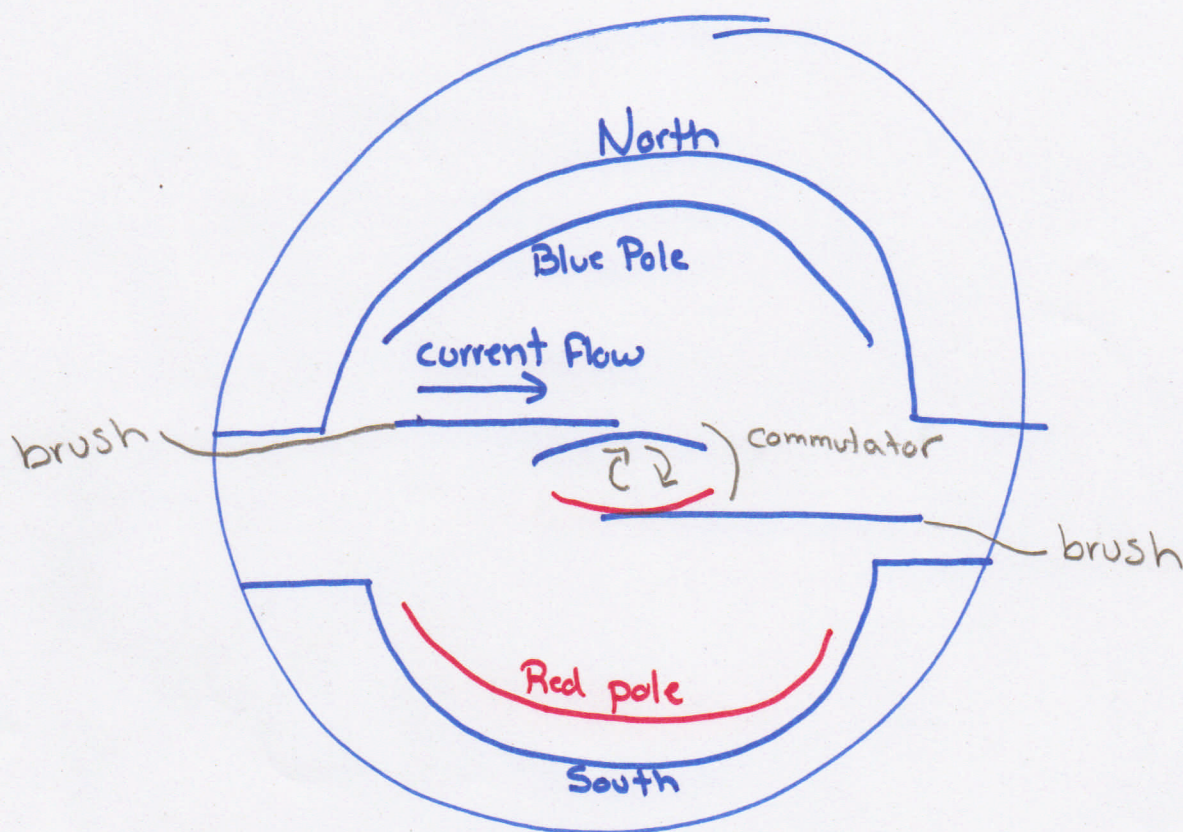 North
Blue Pole
current Flow
brush
commutator
brush
Red pole
South